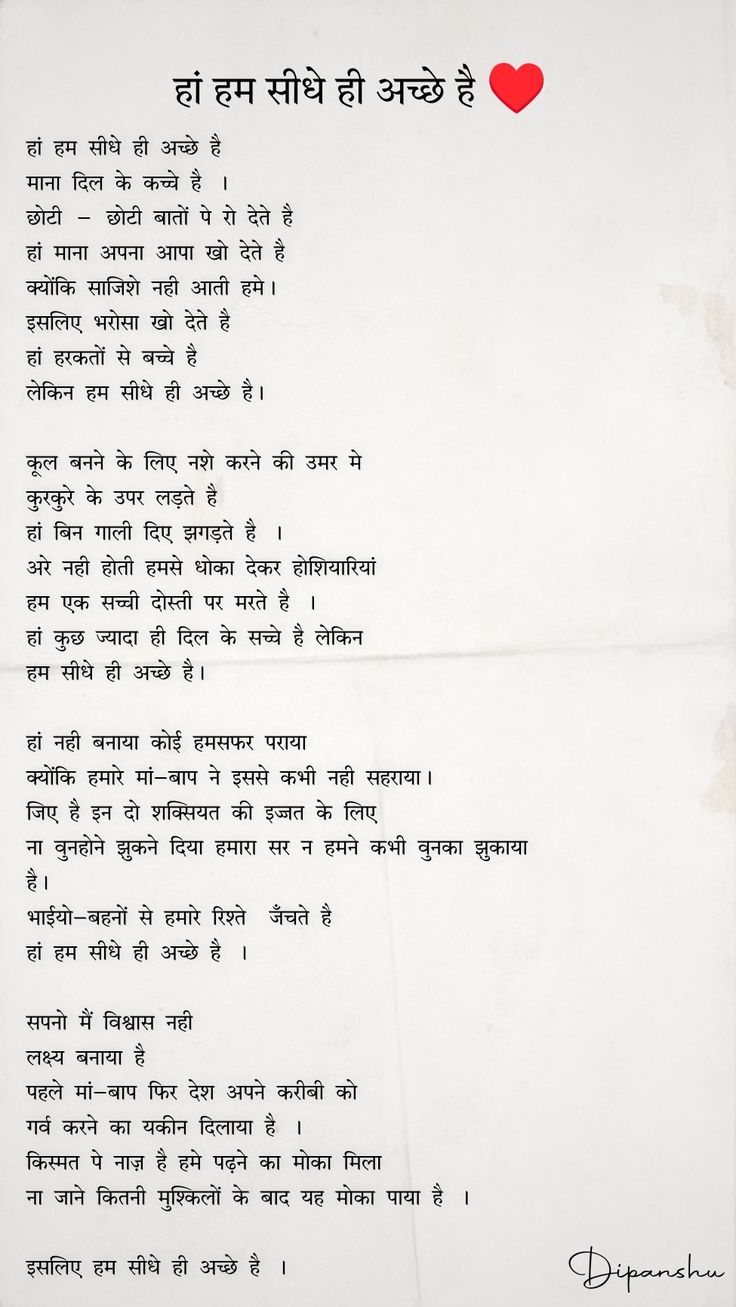 हां हम सीधे ही अच्छे है ❤️
हां हम सीधे ही अच्छे है
माना दिल के कच्चे है ।
छोटी - छोटी बातों पे रो देते है
हां माना अपना आपा खो देते है
क्योंकि साजिशे नही आती हमे।
इसलिए भरोसा खो देते है
हां हरकतों से बच्चे है
लेकिन हम सीधे ही अच्छे है।
कूल बनने के लिए नशे करने की उमर मे
कुरकुरे के उपर लड़ते है
हां बिन गाली दिए झगड़ते है ।
अरे नही होती हमसे धोका देकर होशियारियां
हम एक सच्ची दोस्ती पर मरते है ।
हां कुछ ज्यादा ही दिल के सच्चे है लेकिन
हम सीधे ही अच्छे है।
हां नही बनाया कोई हमसफर पराया
क्योंकि हमारे मां-बाप ने इससे कभी नही सहराया।
जिए है इन दो शक्सियत की इज्जत के लिए
ना वुनहोने झुकने दिया हमारा सर न हमने कभी वुनका झुकाया
है।
भाईयो-बहनों से हमारे रिश्ते जँचते है
हां हम सीधे ही अच्छे है ।
सपनो मैं विश्वास नही
लक्ष्य बनाया है
पहले मां-बाप फिर देश अपने करीबी को
गर्व करने का यकीन दिलाया है ।
किस्मत पे नाज़ है हमे पढ़ने का मोका मिला
ना जाने कितनी मुश्किलों के बाद यह मोका पाया है ।
इसलिए हम सीधे ही अच्छे है ।
Dipanshu